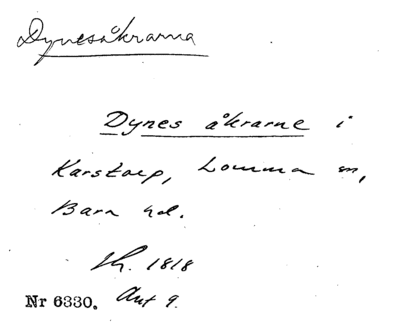 Dynesåkrarna
Dynes åkrarne i
Karstorp, Lomma sn,
Bara hd.
Sk. 1818
Nr 6330. Akt 9.